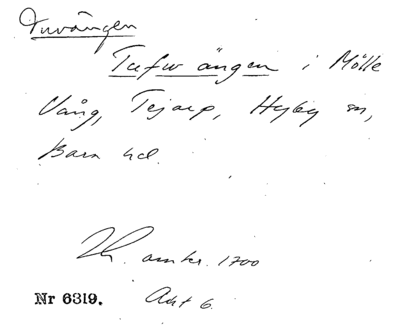 Tuvängen
Tufwe ängen i Mölle
Vång, Tejarp, Hyby sn,
Bara hd.
Lh. omkr. 1700
Nr 6319. Akt 6.